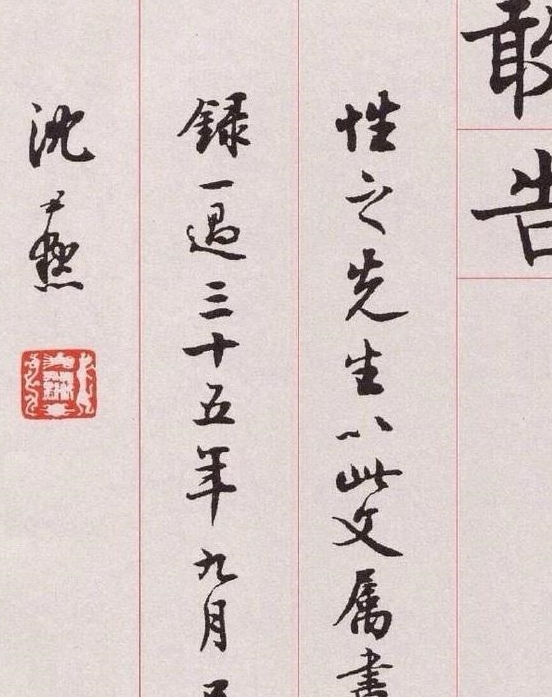 敢告
性之先生以此文属書
録一過三十五年九月
沈尹默